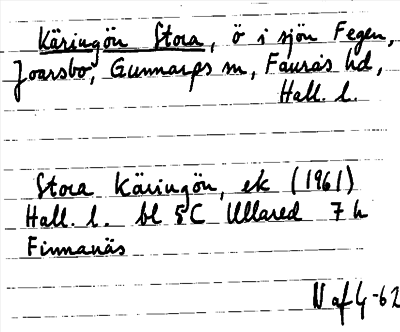 Käringön Stora, ö i sjön Fegen,
Joarsbo, Gunnarps sn, Faurås hd,
Hall. l.
Stora Käringön, ek (1961)
Hall. l. bl 5C Ullared 7 h
Finnanäs
-62